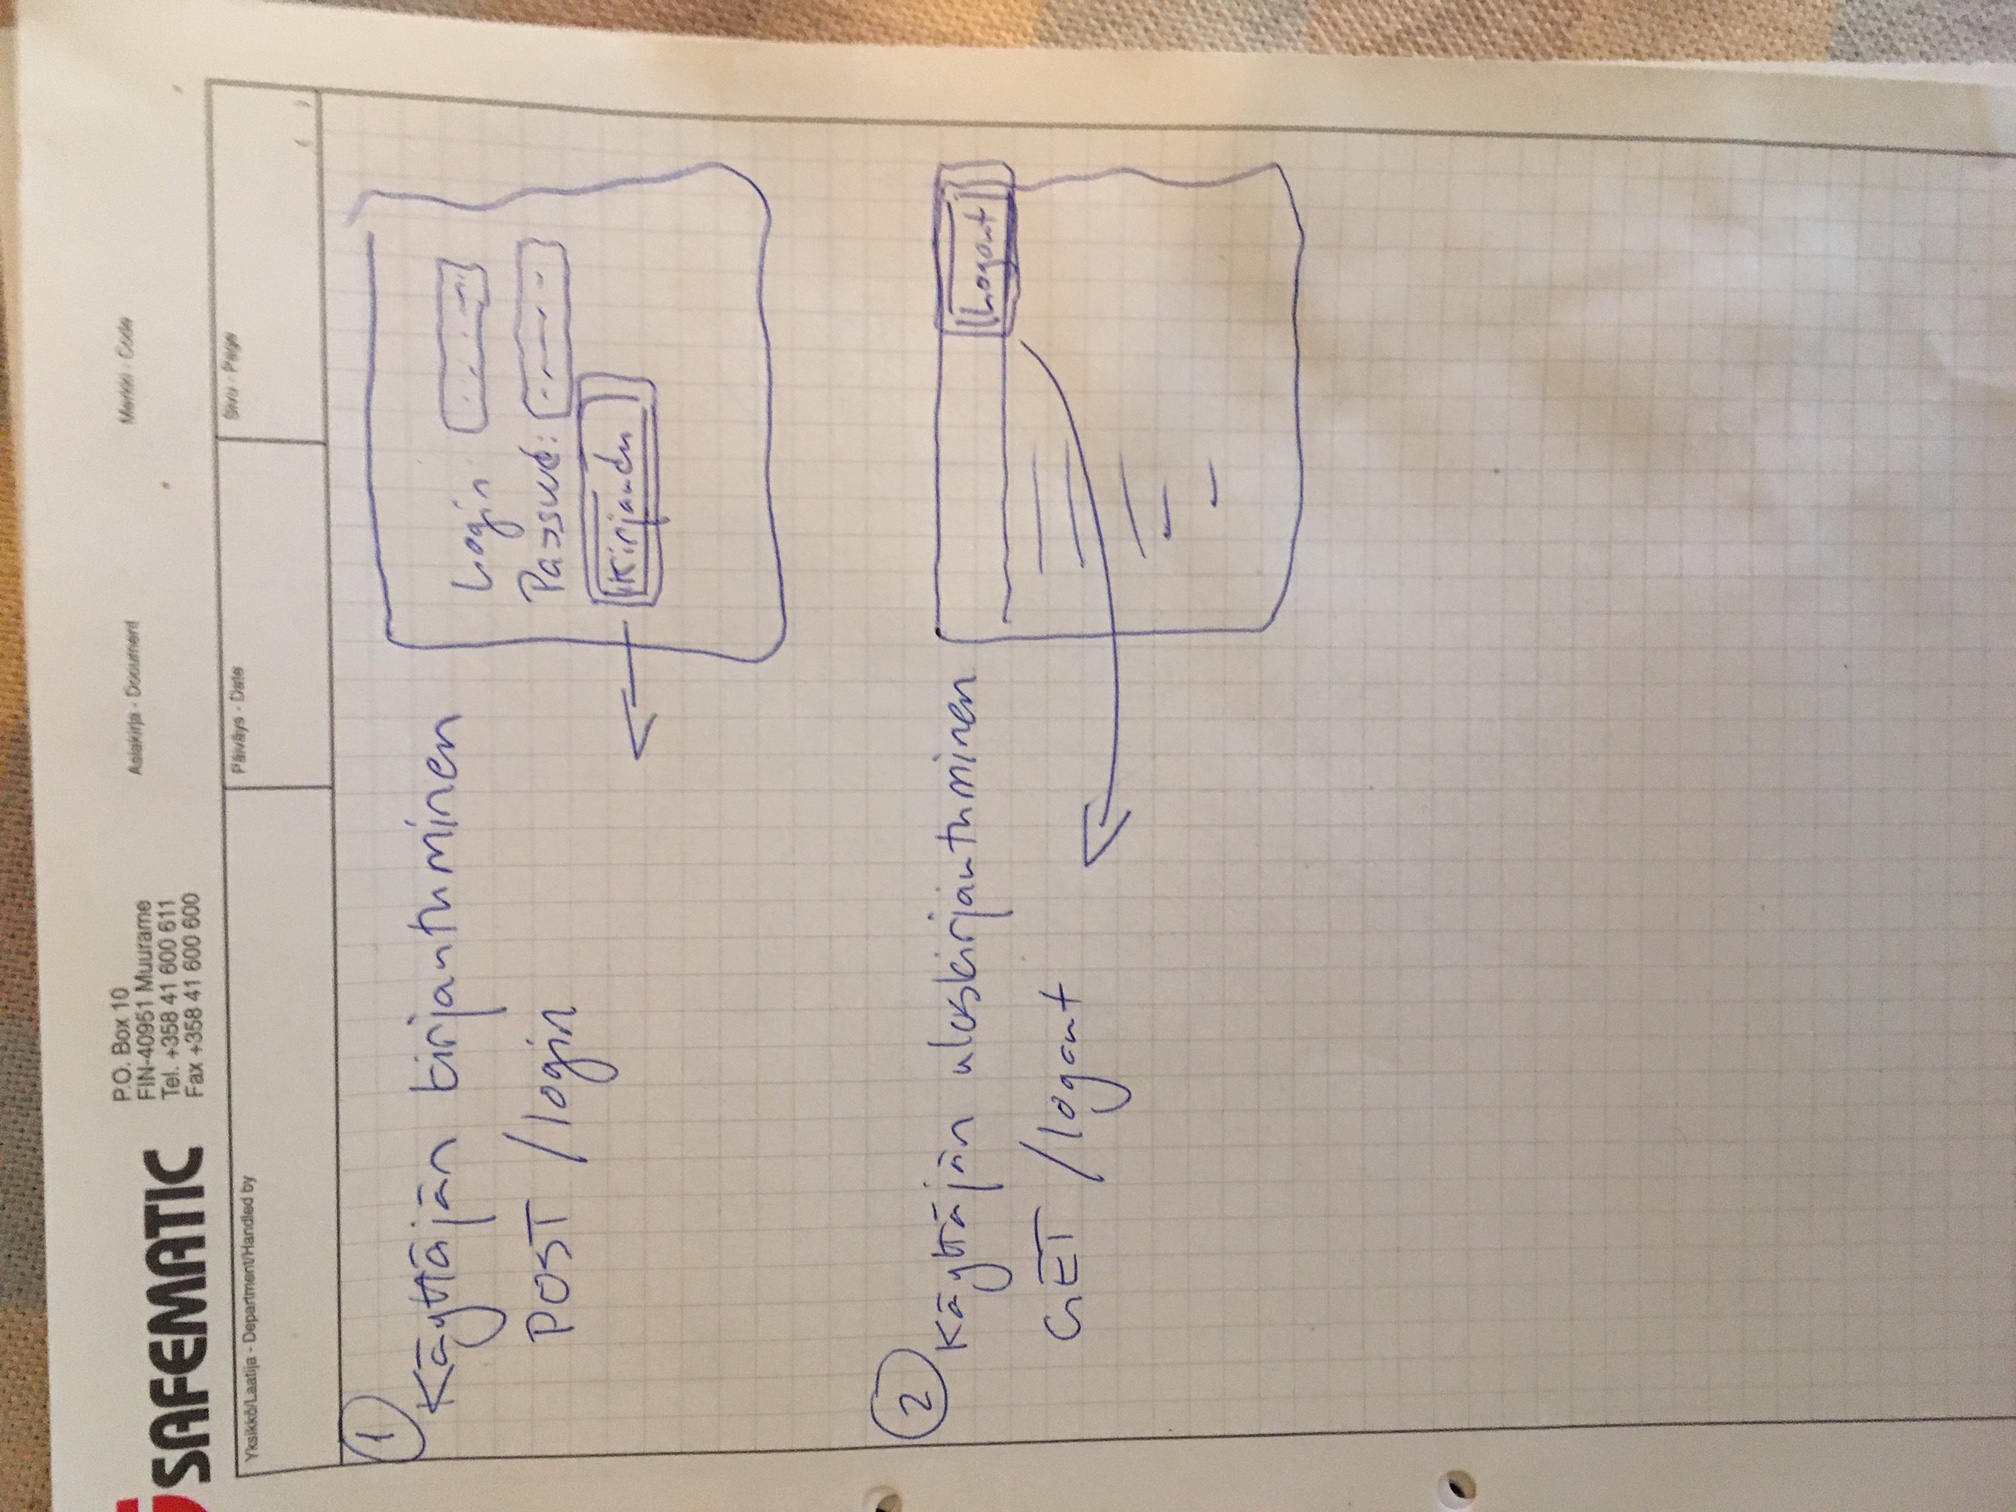 SAFEMATIC
P.O. Box 10
FIN-40951 Muurame
Tel. +358 41 600 611
Fax +358 41 600 600
Asiakirja - Document
Merkki - Code
Yksikkö/Laatija - Department/Handled by
Päiväys - Date
Sivu - Page
( )
1
Käyttäjän kirjautuminen
POST /login
Login
Passwd:
Kirjaudu
2
Käyttäjän uloskirjautuminen
GET /logout
Logout